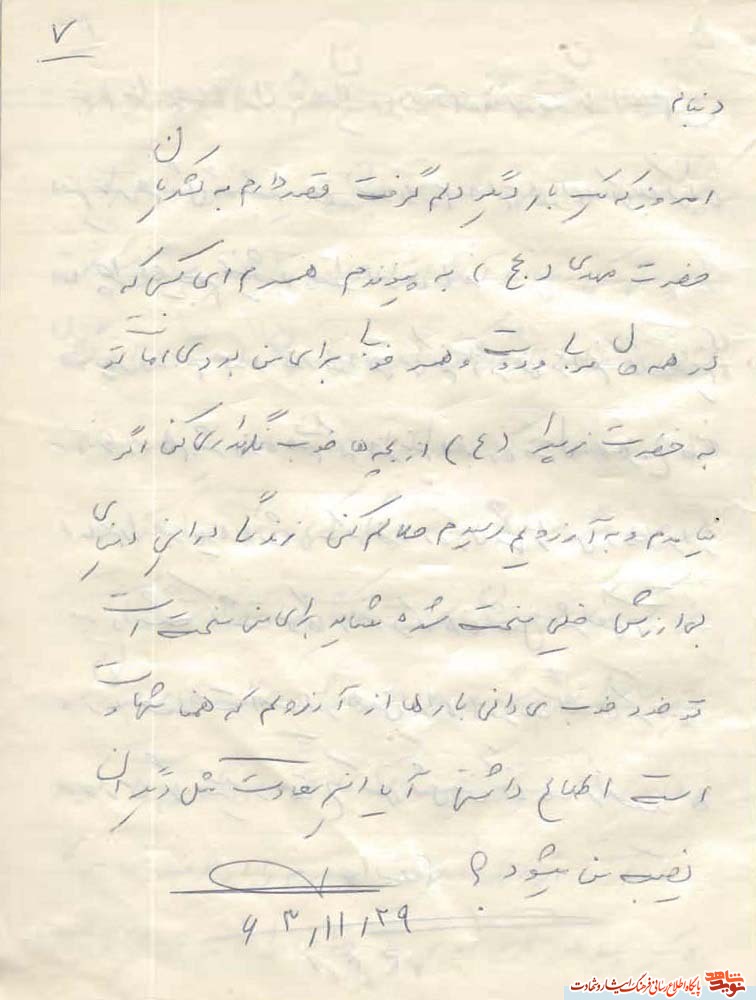 ۷
دنباله
امروز که یک بار دیگر دلم گرفت قصد دارم به لشکریان
حضرت مهدی (عج) به پیوندم همسرم ای کسی که
در همه حال مرا دوست و همسر خوبی برای من بودی اما تو
به حضرت زهرا (ع) از بچه ها خوب نگهداری کن اگر
نیامدم و به آرزویم رسیدم حلالم کن زندگی در این دنیای
بی ارزش خیلی سخت شده شاید برای من سخت است
تو خود خوب می دانی بارها از آرزویم که همانا شهادت
است اطلاع داشتی آیا این سعادت مثل دیگران
نصیب من میشود ؟
۶۳/۱۱/۲۹
نوید شاهد
پایگاه اطلاع رسانی فرهنگ ایثار و شهادت